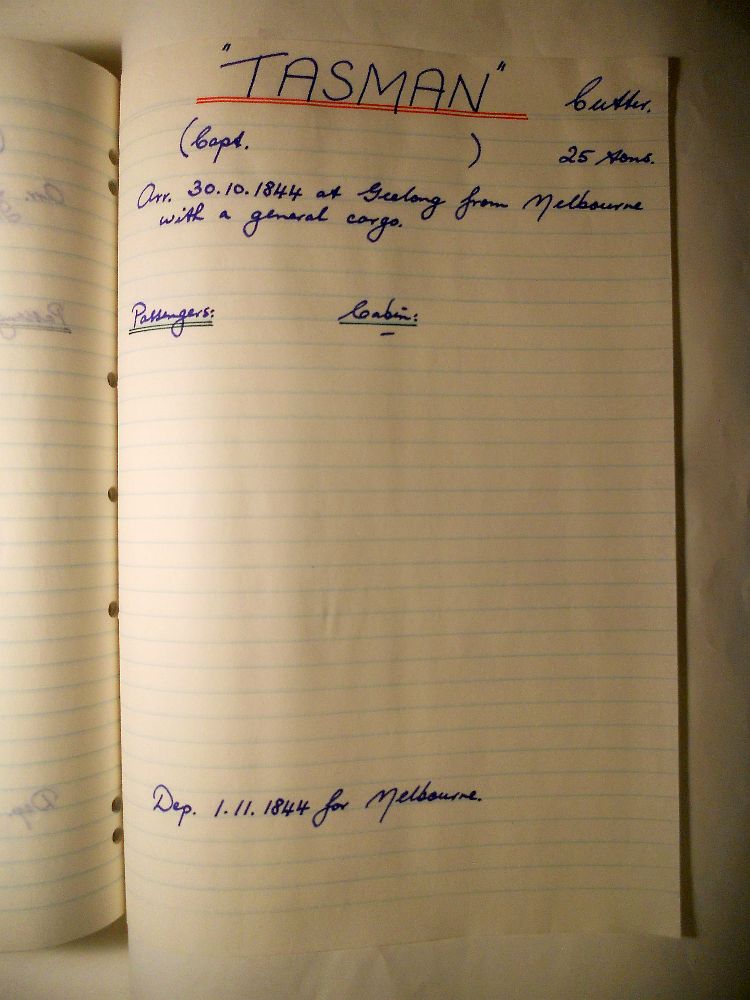 "TASMAN" Cutter.
(Capt. ) 25 tons.
Arr. 30.10.1844 at Geelong from Melbourne
with a general cargo.
Passengers: Cabin:
–
Dep. 1.11.1844 for Melbourne.